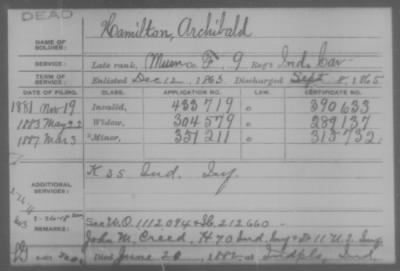 DEAD
Hamilton, Archibald
NAME OF SOLDIER:
SERVICE: Late rank, Co. F 9 Reg't Ind. Cav
TERM OF SERVICE: Enlisted Dec 12, 1863 Discharged Sept 8, 1865
DATE OF FILING. CLASS. APPLICATION NO. LAW. CERTIFICATE NO.
1881 Nov 19 Invalid, 433719 390633
1883 May Widow, 304579 289137
1887 Mar 3 Minor, 351211 313732
ADDITIONAL SERVICES: K 35 Ind. Inf.
REMARKS: See W.O. 1112094 212660
John M. Creed, H 70 Ind. Inf & D 11 U.S. Inf
Died June 20, 1882, at Indpls, Ind